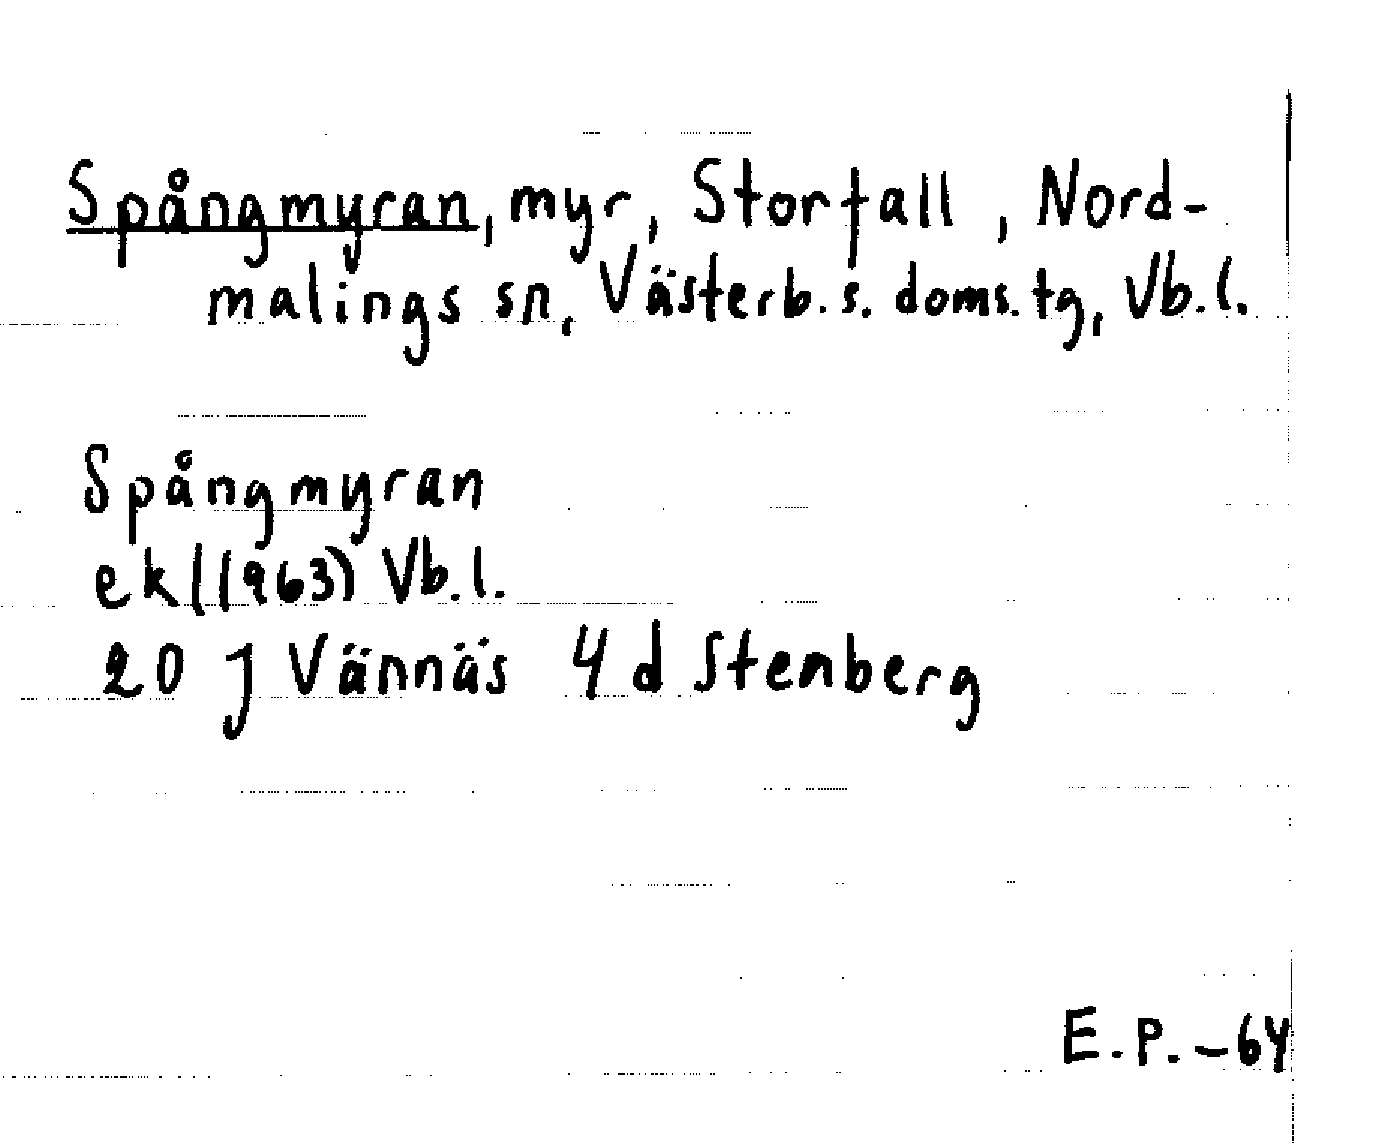 Spångmyran, myr, Storfall, Nord-
malings sn, Västerb. s. doms. tg, Vb. l.
Spångmyran
ek l (1963) Vb. l.
20 J Vännäs 4 d Stenberg
E. P. - 64